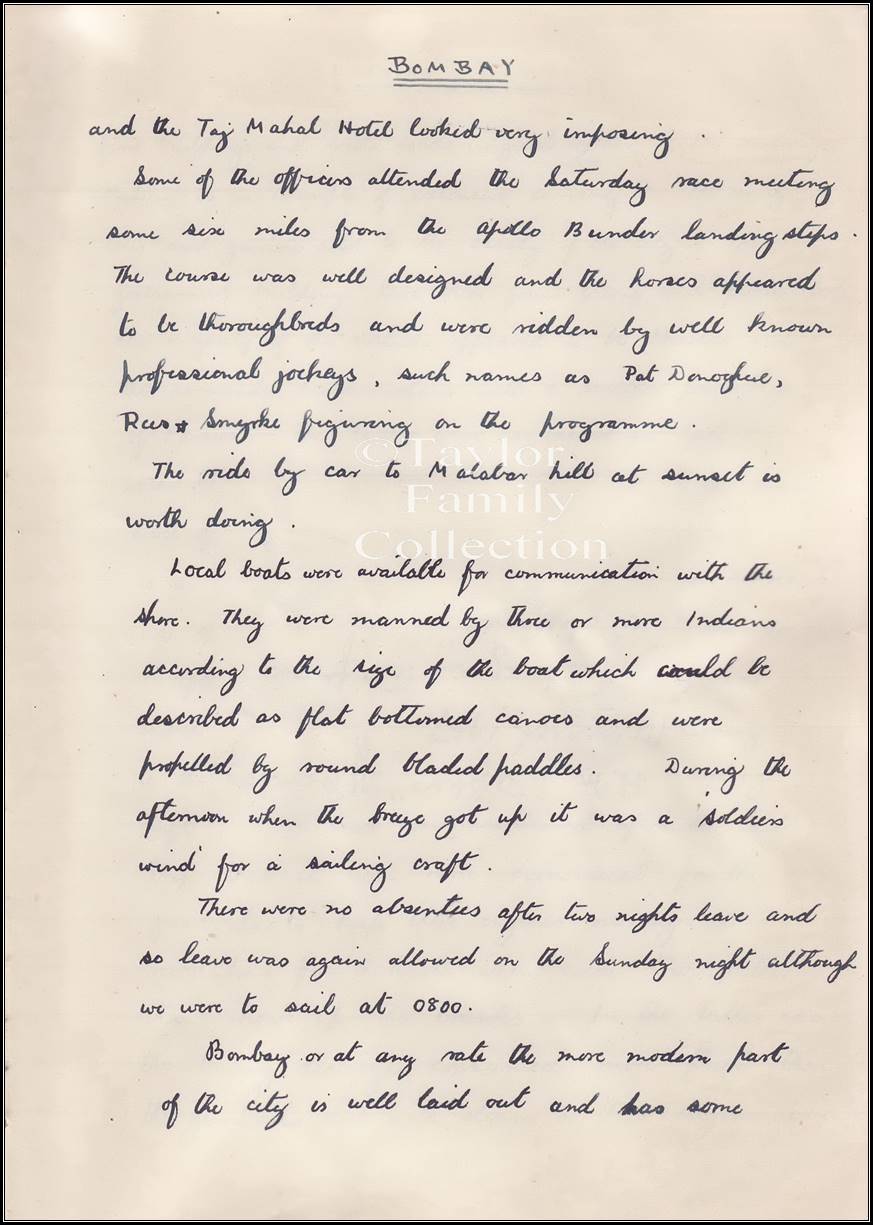 BOMBAY
and the Taj Mahal Hotel looked very imposing .
Some of the officers attended the Saturday race meeting
some six miles from the Apollo Bunder landing steps .
The course was well designed and the horses appeared
to be thoroughbreds and were ridden by well known
professional jockeys , such names as Pat Donoghue,
Rees & Smyrke figuring on the programme .
The ride by car to Malabar hill at sunset is
worth doing .
Local boats were available for communication with the
shore. They were manned by three or more Indians
according to the size of the boat which could be
described as flat bottomed canoes and were
propelled by round bladed paddles. During the
afternoon when the breeze got up it was a 'soldiers
wind' for a sailing craft .
There were no absentees after two nights leave and
so leave was again allowed on the Sunday night although
we were to sail at 0800.
Bombay or at any rate the more modern part
of the city is well laid out and has some
©Taylor
Family
Collection